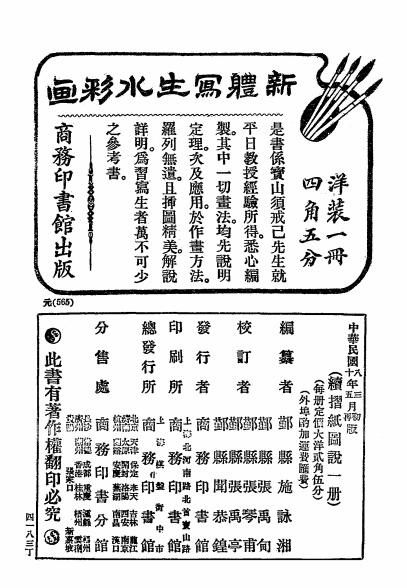 新體寫生水彩画
洋装一冊
四角五分
是書係寶山須戒己先生就
平日教授經驗所得。悉心編
製。其中一切畫法。均先說明
定理。次及應用。於作畫方法。
羅列無遺。且揷圖精美。解說
詳明。爲習寫生者萬不可少
之參考書。
商務印書館出版
元(565)
中華民國
八年三月初版
十年五月再版
(續摺紙圖說一册)
(每册定價大洋貳角伍分)
(外埠酌加運費匯費)
編纂者 鄞縣施詠湘
校訂者 鄞縣張禹甸
鄞縣張琴甫
鄞縣張萬亭
鄞縣聞恭鍠
發行者 商務印書館
印刷所 上海北河南路北首寶山路
商務印書館
總發行所 上海棋盤街中市
商務印書館
分售處 商務印書分館
此書有著作權翻印必究
四一八三丁